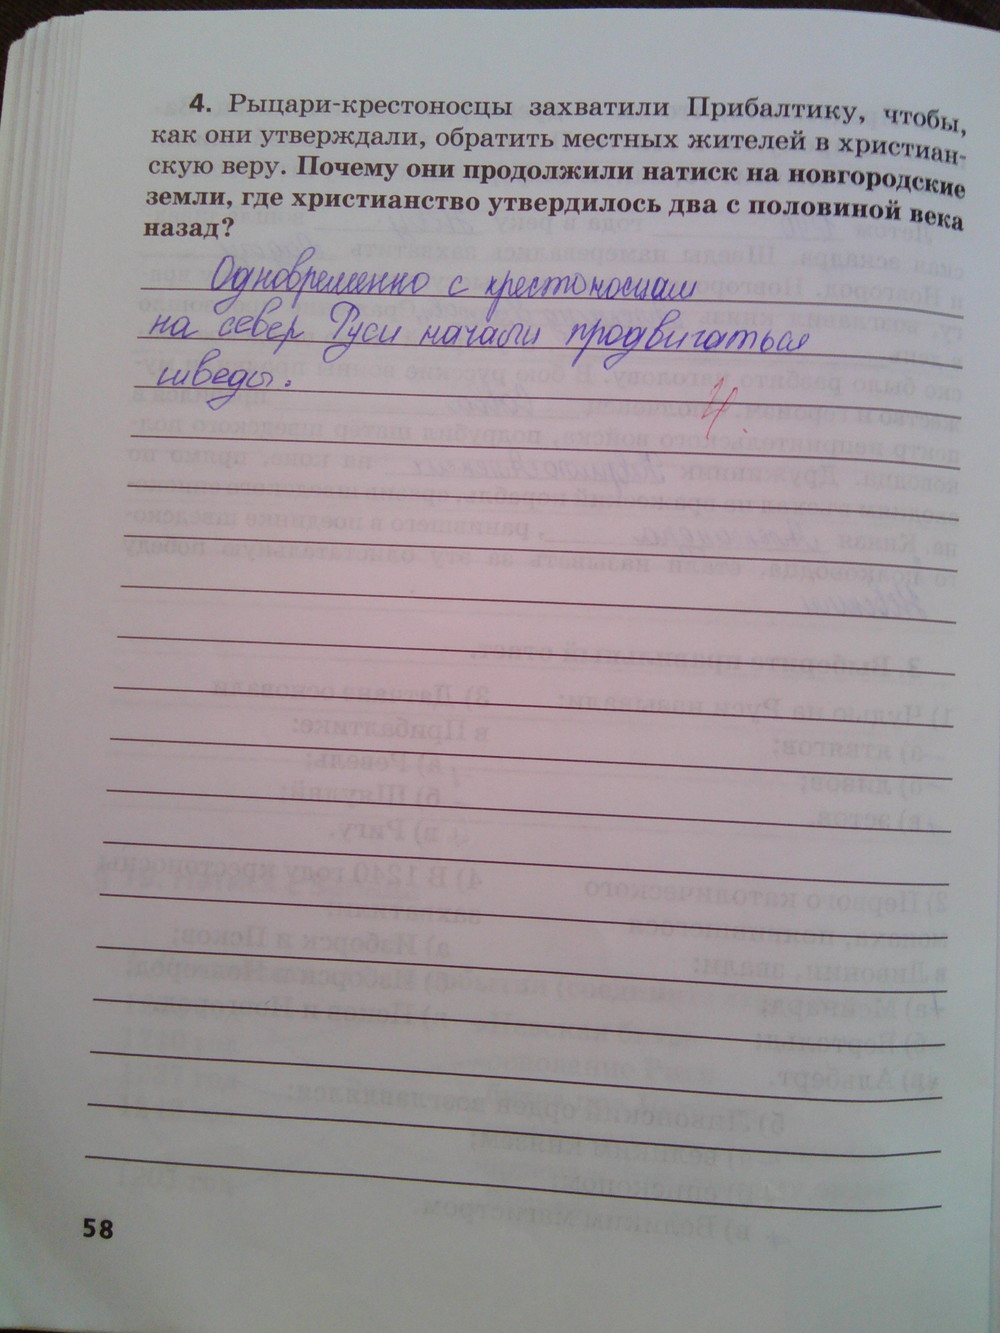 4. Рыцари-крестоносцы захватили Прибалтику, чтобы,
как они утверждали, обратить местных жителей в христиан-
скую веру. Почему они продолжили натиск на новгородские
земли, где христианство утвердилось два с половиной века
назад?
Одновременно с крестоносцам
на север Руси начали продвигаться
шведы.
4.
58